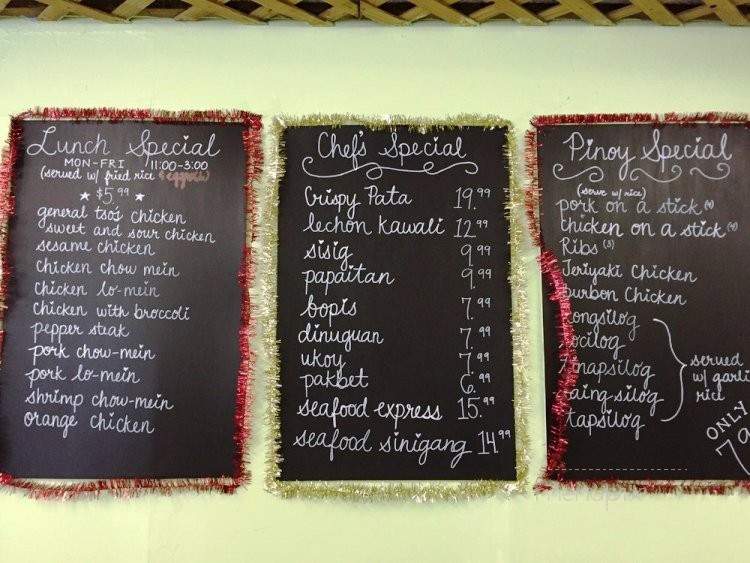 Lunch Special
MON-FRI 11:00-3:00
(served w/ fried rice & eggroll)
$5.99
general tso's chicken
sweet and sour chicken
sesame chicken
chicken chow mein
chicken lo-mein
chicken with broccoli
pepper steak
pork chow-mein
pork lo-mein
shrimp chow-mein
orange chicken
Chef's Special
Crispy Pata 19.99
lechon kawali 12.99
sisig 9.99
papaitan 9.99
bopis 7.99
dinuguan 7.99
ukoy 7.99
pakbet 6.99
seafood express 15.99
seafood sinigang 14.99
Pinoy Special
(serve w/ rice)
pork on a stick
chicken on a stick
Ribs (3)
Teriyaki Chicken
burbon Chicken
longsilog
tocilog
daing silog
tapsilog
served
w/ garlic
rice
ONLY